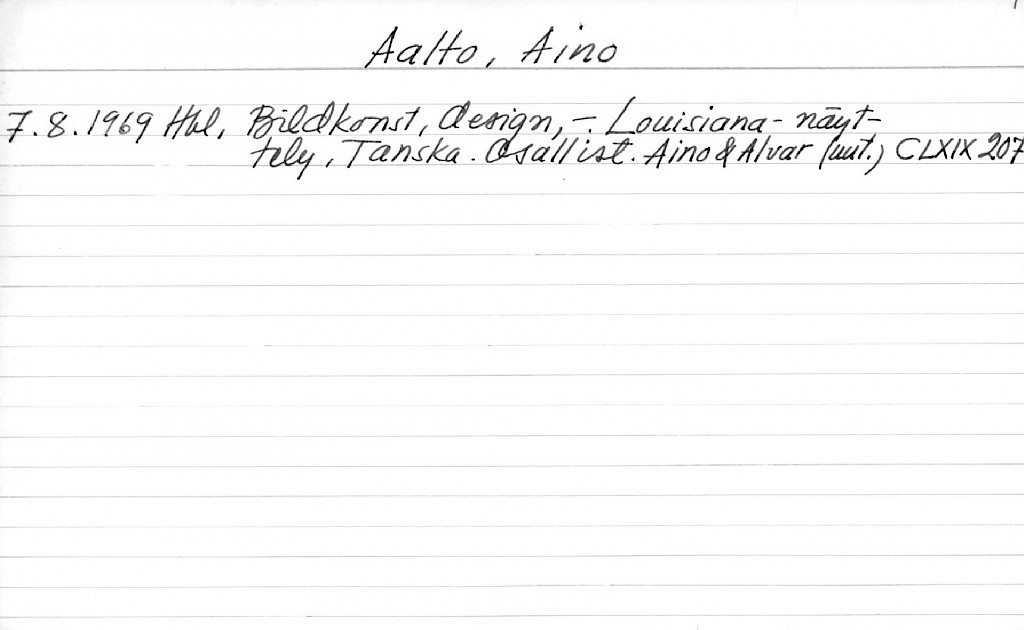 Aalto, Aino
7.8.1969 Hbl, Bildkonst, design, –. Louisiana-näyt-
tely, Tanska. Osallist. Aino & Alvar (uut.) CLXIX 207